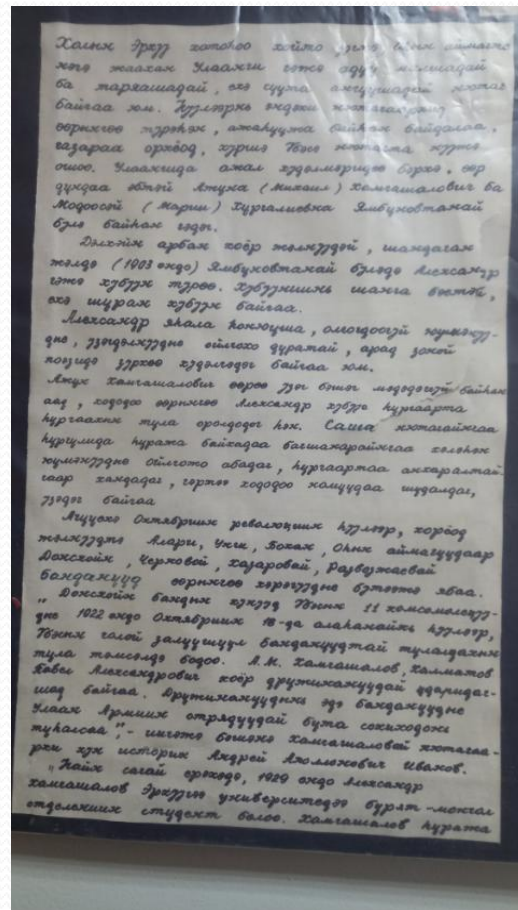 Холын Эрхүү хотоһоо хойто зүгтэ, Оһын аймагта
нэгэ жаахан Улаанги гэжэ адуу малшадай
ба таряашадай, эхэ сууута ангуушадай нютаг
байгаа юм. Һүүлээрнь эндэхи нютагаархид
өөрынгөө түрэһэн, ажаһуужа байһан байдалаа,
газараа орхёод, хүршэ Төөн нютагта нүүжэ
ошоо. Улаангида ажал хүдэлмэришдөө бэрхэ, өөр
дундаа эбтэй Атуха (Михаил) Хамгашалович ба
Модоосой (Мария) Хургалиевна Ямбуновтанай
бүлэ байһан гэдэг.
Дэлхэйн арбан хоёр жэлнүүдэй, шандаган
жэлдэ (1903 ондо) Ямбуновтанай бүлэдэ Александр
гэжэ хүбүүн түрөө. Хүбүүниинь шанга бэетэй,
эхэ шуран хүбүүн байгаа.
Александр яһала һонюуша, ологдоогүй юумэнүү-
дые, үзэгдэлнүүдые ойлгохо дуратай, арад зоной
поэзидэ зүрхөө хүдэлгэдэг байгаа юм.
Атуха Хамгашалович өөрөө үзэг бэшэг мэдэдэггүй байһан
аад, хододоо өөрынгөө Александр хүбүүе һургаарта
һургаахын тула оролдодог һэн. Сашга нютагайнгаа
һургуулида һуража байхадаа багшанарайнгаа хэлэһэн
юумэнүүдые ойлгото абадаг, һургаартаа анхаралтай-
гаар хандадаг, гэртээ хододоо номуудаа шудалдаг,
үзэдэг байгаа
Агууехэ Октябриин революциин һүүлээр, хорёод
жэлнүүдтэ Алари, Унги, Бохан, Оһын аймагуудаар
Донской, Черновой, Хазаровай, Развозжаевай
банданууд өөрынгөө хэрэгүүдые бүтээжэ ябаа.
„Донскойн бандын хүнүүд Төөнэй 11 комсомолецүү-
дые 1922 ондо Октябриин 18-да алаһанайнь һүүлээр,
Төөнэй голой залуушуул бандануудтай тулалдахын
тула тэмсэлдэ бодоо. А.М. Хамгашалов, Халматов
Павел Александрович хоёр дружинануудай ударидаг-
шад байгаа. Дружинануудынь эдэ бандануудые
Улаан Армиин отрядуудай бута сохиходонь
туһалсаа", - ингэжэ бэшэнэ Хамгашаловай нютагаа-
рхи хүн историк Андрей Ахолионович Иванов.
„Найн сагай ерэхэдэ, 1929 ондо Александр
Хамгашалов Эрхүүгээ университедэ бурят-монгол
отделениин студент болоо. Хамгашалов һуража